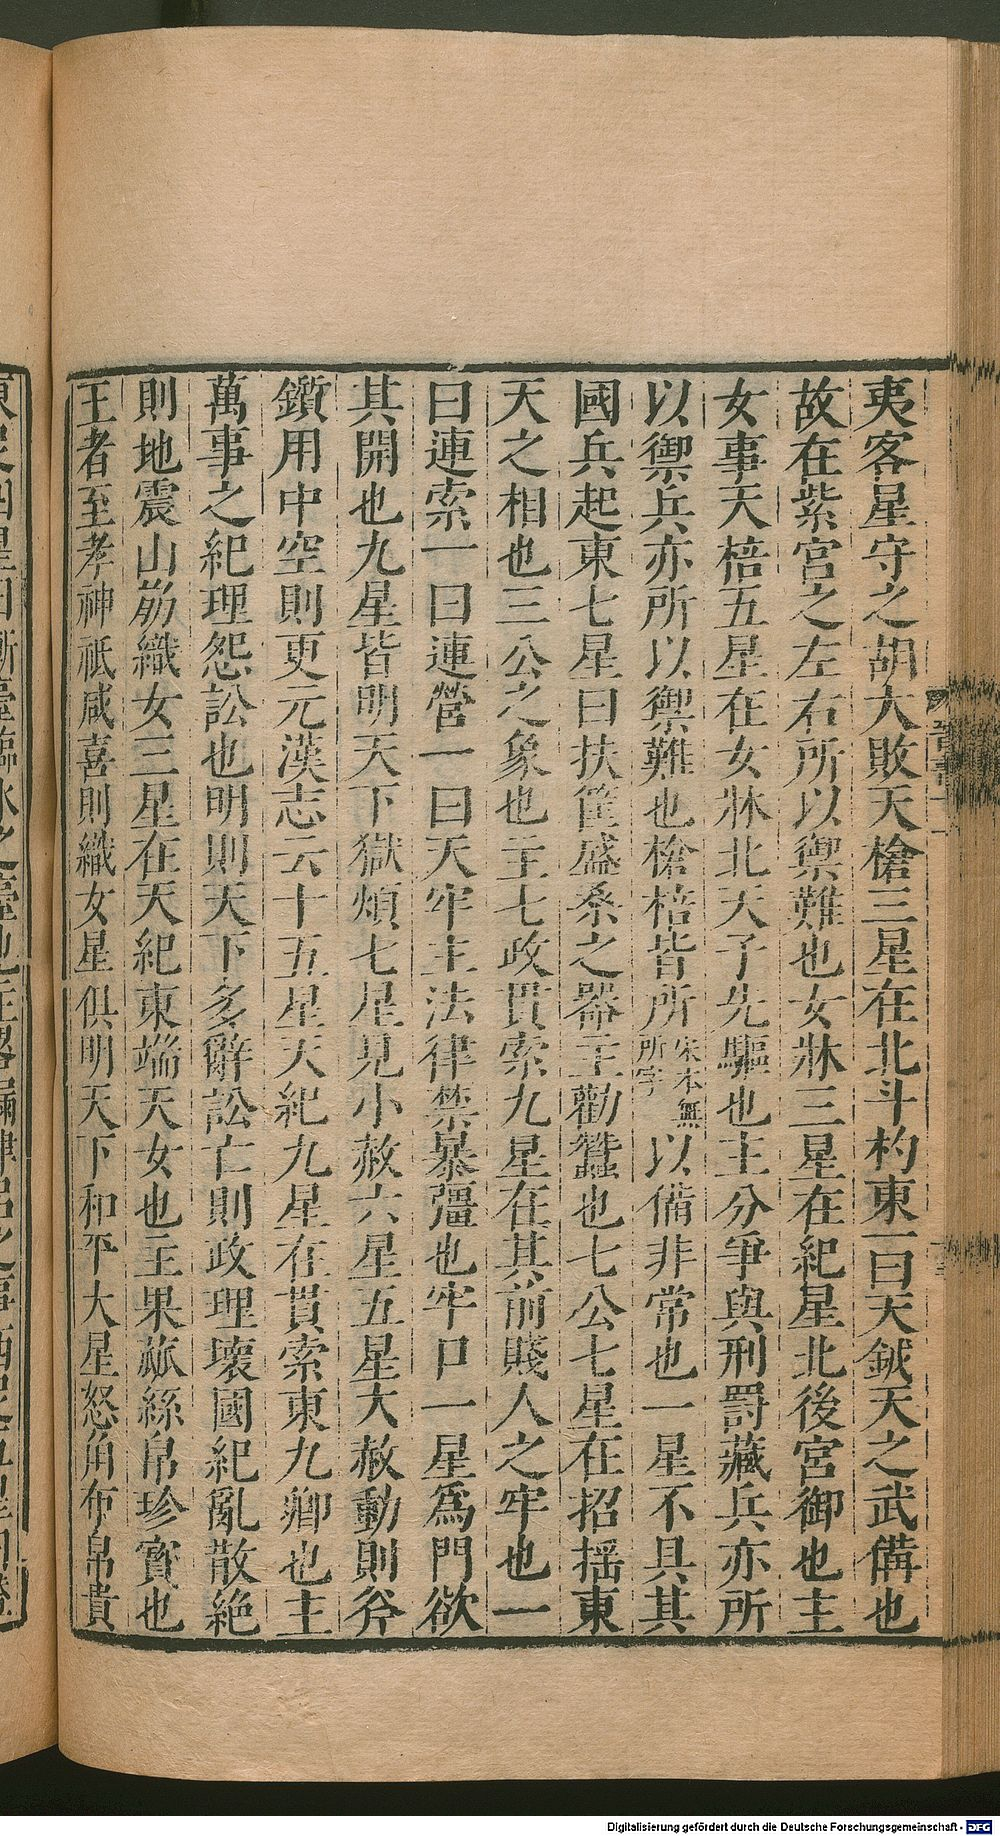 夷客星守之胡大敗天槍三星在北斗杓東一曰天鉞天之武備也
故在紫宮之左右所以禦難也女牀三星在紀星北後宮御也主
女事天棓五星在女牀北天子先驅也主分爭與刑罰藏兵亦所
以禦兵亦所以禦難也槍棓皆所宋本無所字以備非常也一星不具其
國兵起東七星曰扶筐盛桑之器主勸蠶也七公七星在招揺東
天之相也三公之象也主七政貫索九星在其前賤人之牢也一
曰連索一曰連營一曰天牢主法律禁暴彊也牢口一星爲門欲
其開也九星皆明天下獄煩七星見小赦六星五星大赦動則斧
鑕用中空則更元漢志云十五星天紀九星在貫索東九卿也主
萬事之紀理怨訟也明則天下多辭訟亡則政理壞國紀亂散絶
則地震山崩織女三星在天紀東端天女也主果蓏絲帛珍寶也
王者至孝神祇咸喜則織女星俱明天下和平大星怒角布帛貴
Digitalisierung gefördert durch die Deutsche Forschungsgemeinschaft - DFG